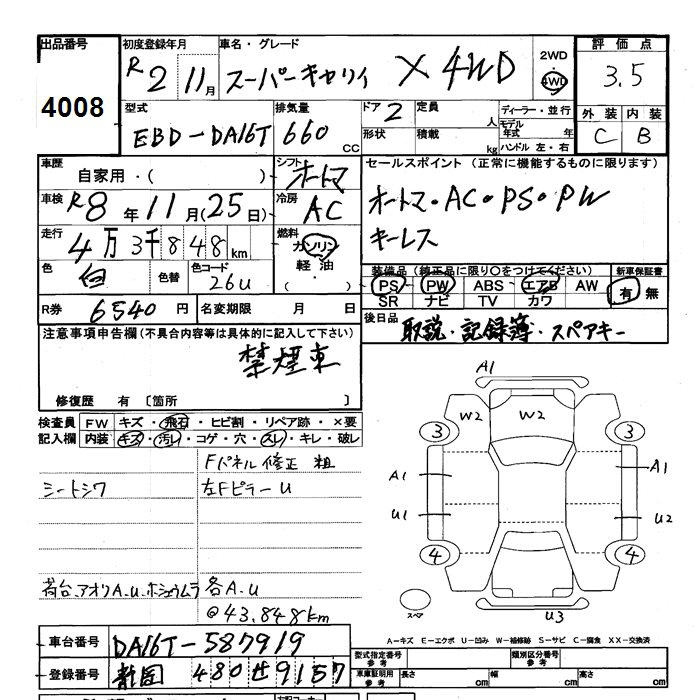 出品番号 4008
初度登録年月 R2 11月
車名・グレード スーパーキャリイ X 4WD
2WD 4WD
評価点 3.5
型式 EBD-DA16T
排気量 660 cc
ドア 2 定員 人
形状 積載 kg
ディーラー・並行
モデル年式 年
ハンドル 左・右
外装 内装
C B
車歴 自家用・( )
シフト オートマ
セールスポイント(正常に機能するものに限ります)
車検 R8年11月(25日)
冷房 AC
オートマ・AC・PS・PW
キーレス
走行 4万3千848km
燃料 ガソリン 軽油 ( ・ )
色 白 色替 色コード 26U
装備品(純正品に限り○をつけてください) 新車保証書
PS PW ABS エアB AW 有 無
SR ナビ TV カワ
R券 6540円 名変期限 月 日
後日品 取説・記録簿・スペアキー
注意事項申告欄(不具合内容等は具体的に記入して下さい)
禁煙車
修復歴 有〔箇所 〕
検査員記入欄 FW キズ・飛石・ヒビ割・リペア跡・×要
内装 キズ・汚レ・コゲ・穴・スレ・キレ・破レ
Fパネル修正 粗
シートシワ 左FピラーU
荷台、アオリA.U.ホシュウムラ 各A.U
@43,848km
A1
W2 W2
3 3
A1 A1
U1 U2
4 4
スペア U3
A-キズ E-エクボ U-凹み W-補修跡 S-サビ C-腐食 XX-交換済
車台番号 DA16T-587919
型式指定番号 参考 類別区分番号 参考
登録番号 静岡 480 せ 9157
車庫証明用 参考 長さ cm 幅 cm 高さ cm